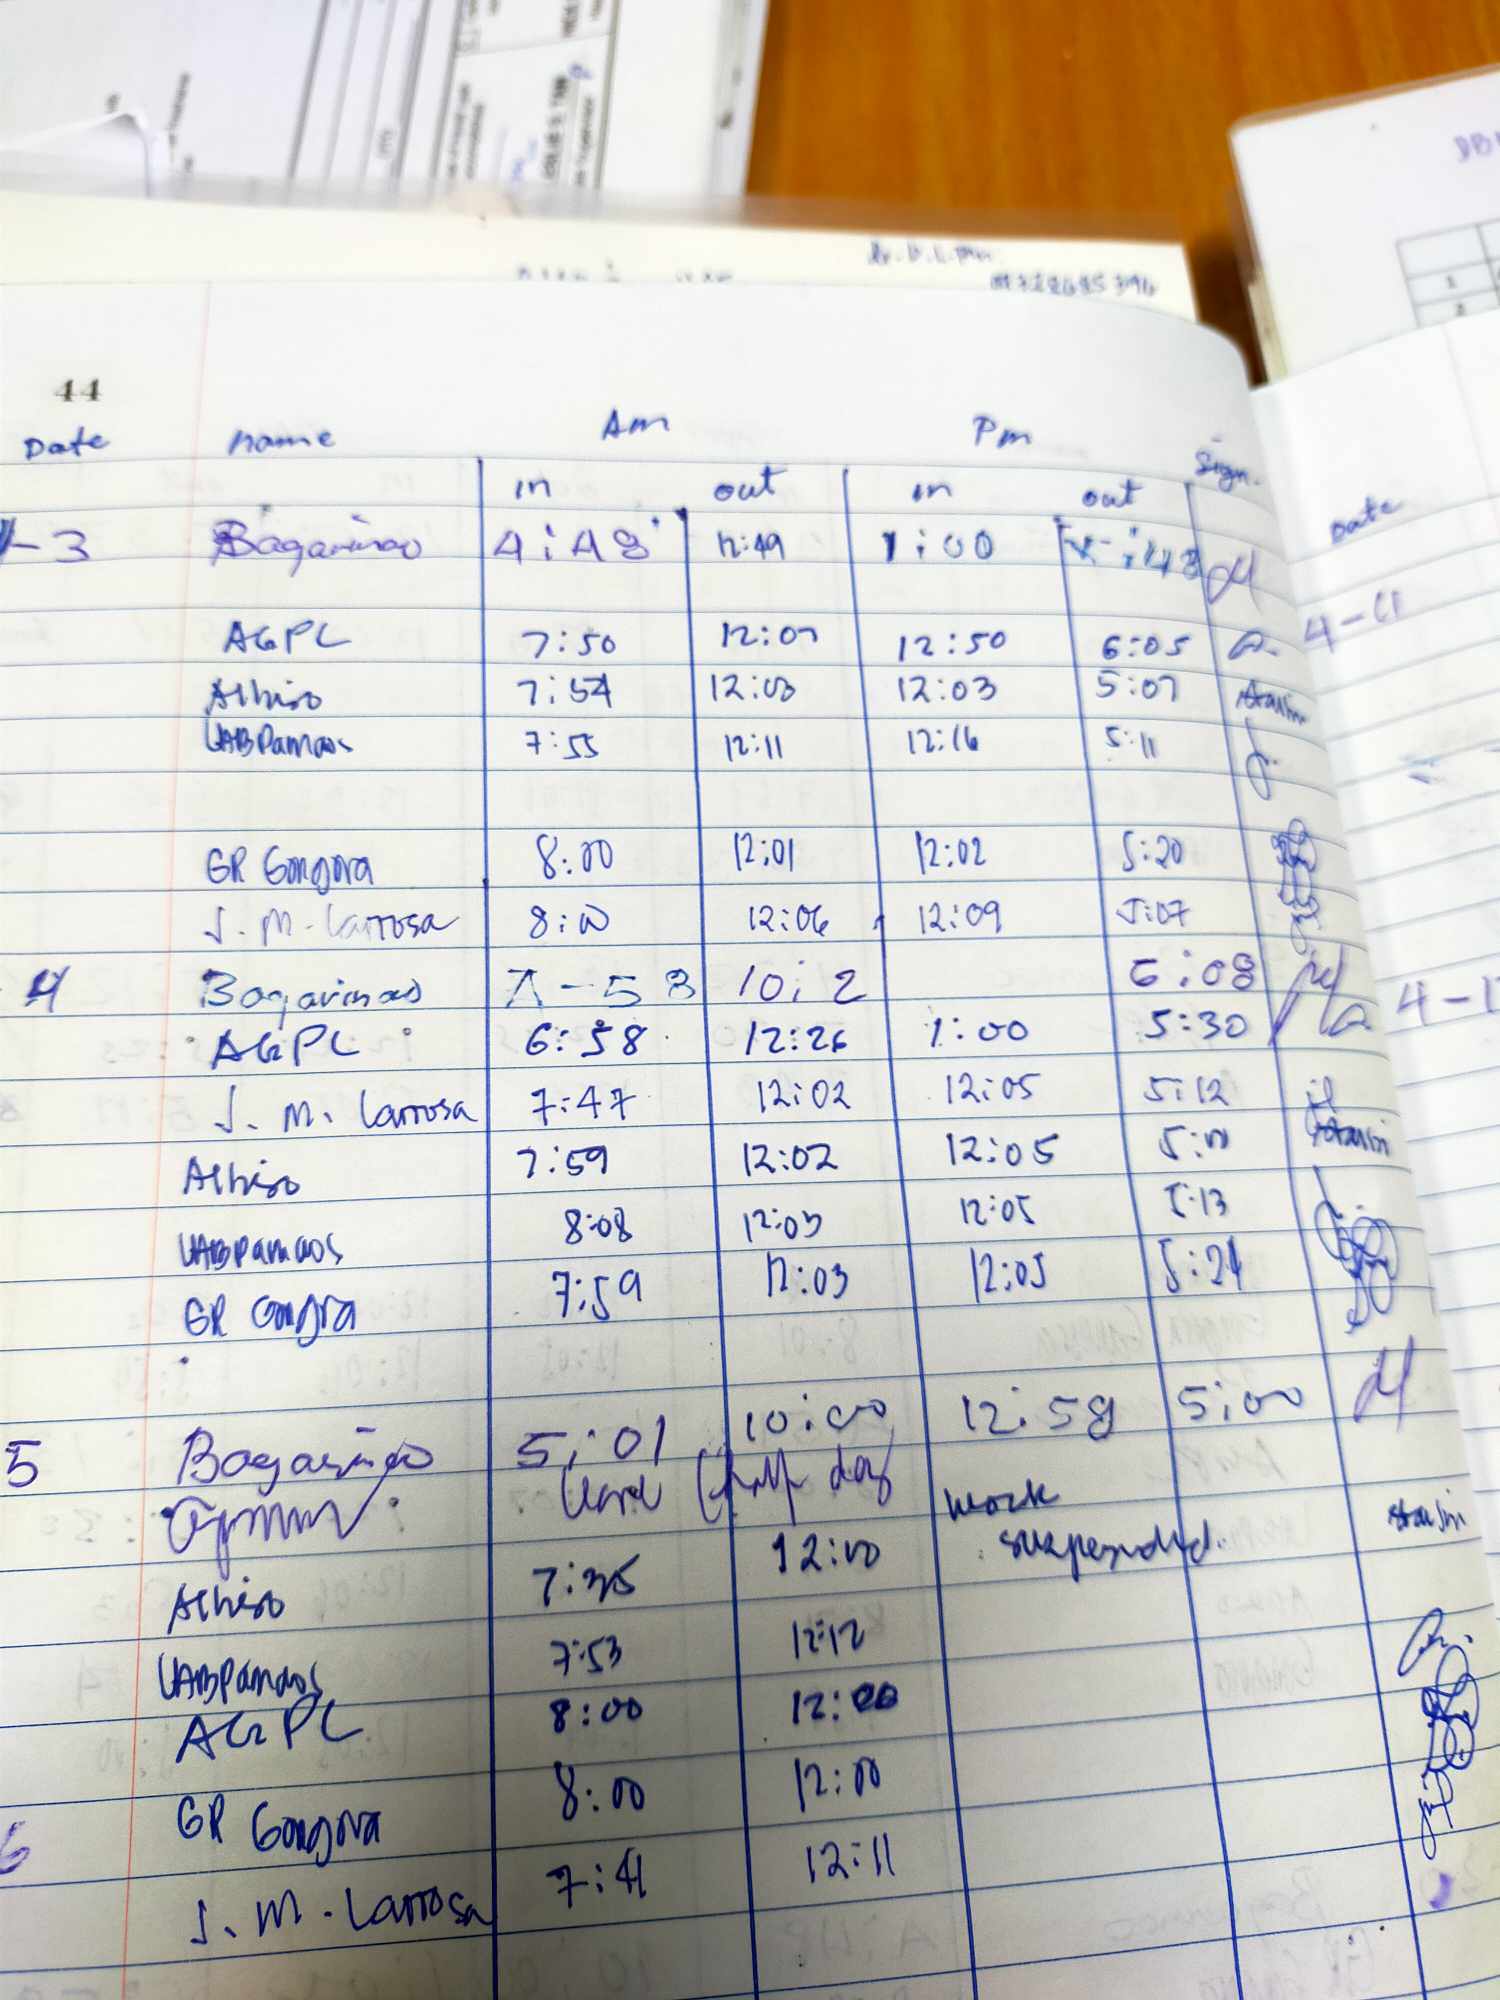 44
Date name Am Pm Sign.
in out in out
-3 Bagarinao 4:48 12:49 1:00
AGPL 7:50 12:07 12:50 6:05
Albiso 7:54 12:03 12:03 5:07
UABPamaos 7:55 12:11 12:16 5:11
GR Gongora 8:00 12:01 12:02 5:20
J. M. Larrosa 8:00 12:06 12:09 5:07
4 Bagarinao 10:2
AGPL 6:58 12:26 1:00 5:30
J. M. Larrosa 7:47 12:02 12:05 5:12
Albiso 7:59 12:02 12:05 5:11
UABPamaos 8:08 12:03 12:05 5:13
GR Gongora 7:59 12:03 12:05 5:24
5 Bagarinao 5:01 10:00 12:58 5:00
(half day work
suspended.
Albiso 7:35 12:00
UABPamaos 7:53 12:12
AGPL 8:00 12:00
GR Gongora 8:00 12:00
6
J. M. Larrosa 7:41 12:11
Date
4-11
4-1
1
2